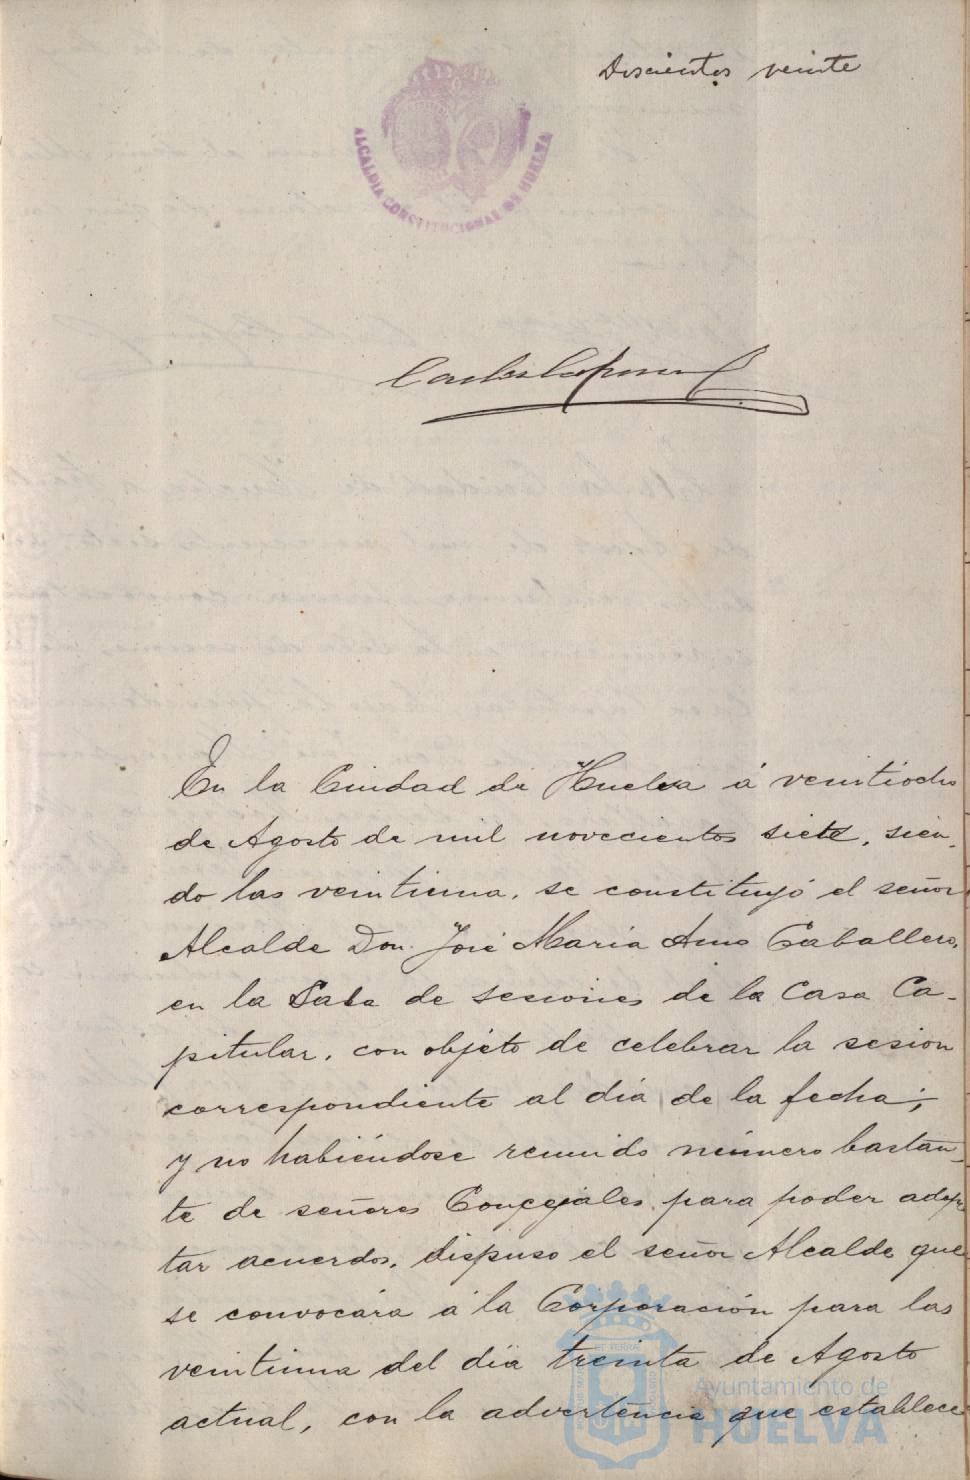 Doscientos veinte
ALCALDIA CONSTITUCIONAL DE HUELVA
En la Ciudad de Huelva á veintiocho
de Agosto de mil novecientos siete, sien-
do las veintiuna, se constituyó el señor
Alcalde Don José Maria Amo Caballero,
en la Sala de sesiones de la Casa Ca-
pitular, con objeto de celebrar la sesion
correspondiente al dia de la fecha;
y no habiéndose reunido número bastan-
te de señores Concejales para poder adop-
tar acuerdos, dispuso el señor Alcalde que
se convocara á la Corporación para las
veintiuna del dia treinta de Agosto
actual, con la advertencia que establece
Ayuntamiento de
HUELVA